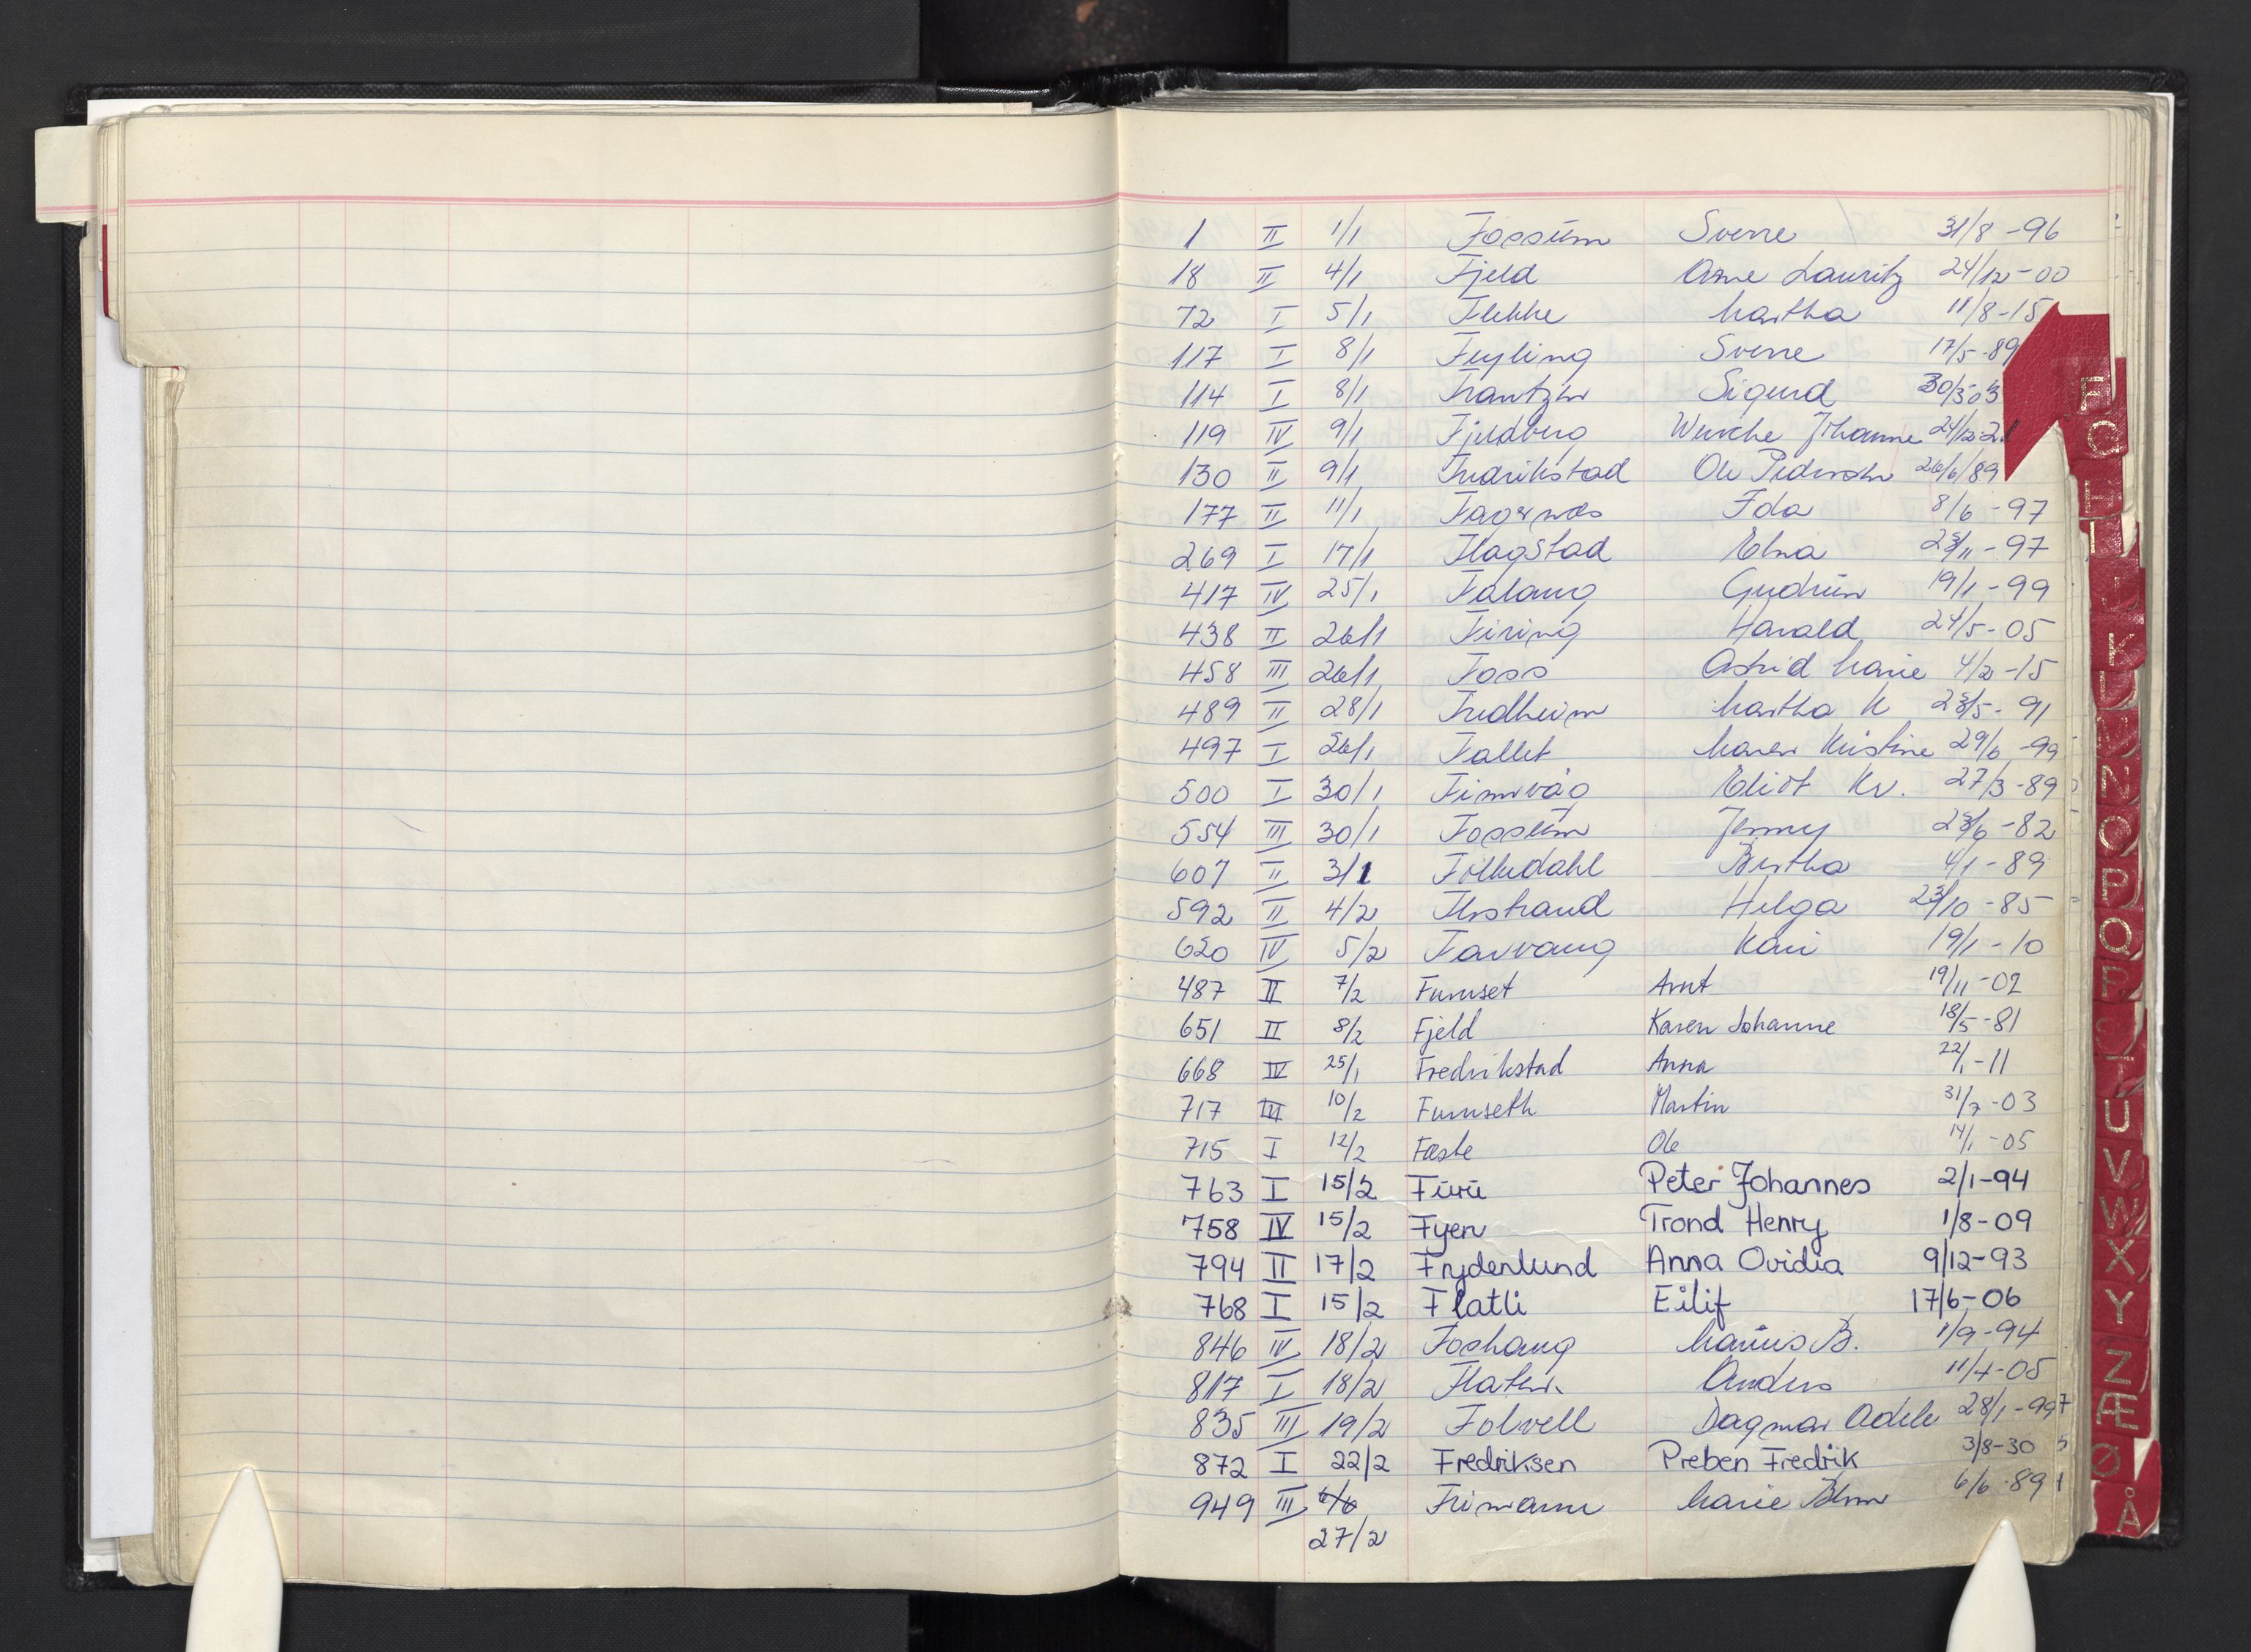 1 II 1/1 Fossum Sverre 31/8 -96
18 II 4/1 Fjeld Arne Lauritz 24/12 -00
72 I 5/1 Flekke Martha 11/8 -15
117 I 8/1 Fuyling Sverre 17/5 -89
114 I 8/1 Frantzen Sigurd 30/3 03
119 IV 9/1 Fjeldberg Wenche Johanne 24/12-21
130 II 9/1 Fredrikstad Ole Pedersen 26/6/89
177 II 11/1 Fagernæs Ida 8/6 -97
269 I 17/1 Flagstad Elna 23/11 -97
417 IV 25/1 Falang Gudrun 19/1 -99
438 II 26/1 Firing Harald 24/5 -05
458 III 26/1 Foss Astrid Marie 4/2 -15
489 II 28/1 Fredheim Martha K 23/5 - 91
497 I 26/1 Fallet Maren Kristine 29/6 -99
500 I 30/1 Finnvåg Eliot Kr. 27/3 -89
554 III 30/1 Fossum Jenny 23/6 -82
607 II 3/1 Folkedahl Bertha 4/1 -89
592 II 4/2 Flostrand Helga 23/10 -85
620 IV 5/2 Favvang Kari 19/1 -10
487 II 7/2 Furuset Arnt 19/11 -02
651 II 8/2 Fjeld Karen Johanne 18/5 -81
668 IV 25/1 Fredrikstad Anna 22/1 -11
717 III 10/2 Furuseth Martin 31/7 -03
715 I 12/2 Fæste Ole 14/1 -05
763 I 15/2 Furu Peter Johannes 2/1-94
758 IV 15/2 Fyen Trond Henry 1/8 -09
794 II 17/2 Frydenlund Anna Ovidia 9/12-93
768 I 15/2 Flatli Eilif 17/6-06
846 IV 18/2 Foshaug Marius B. 1/9 -94
817 I 18/2 Flaten Anders 11/4-05
835 III 19/2 Folvell Dagmar Adele 28/1 -99
872 I 22/2 Fredriksen Preben Fredrik 3/8-30
949 III 6/6 Frimann Marie 6/6 -89
27/2
F
G
H
I
J
K
L
M
N
O
P
Q
R
S
T
U
V
W
X
Y
Z
Æ
Ø
Å